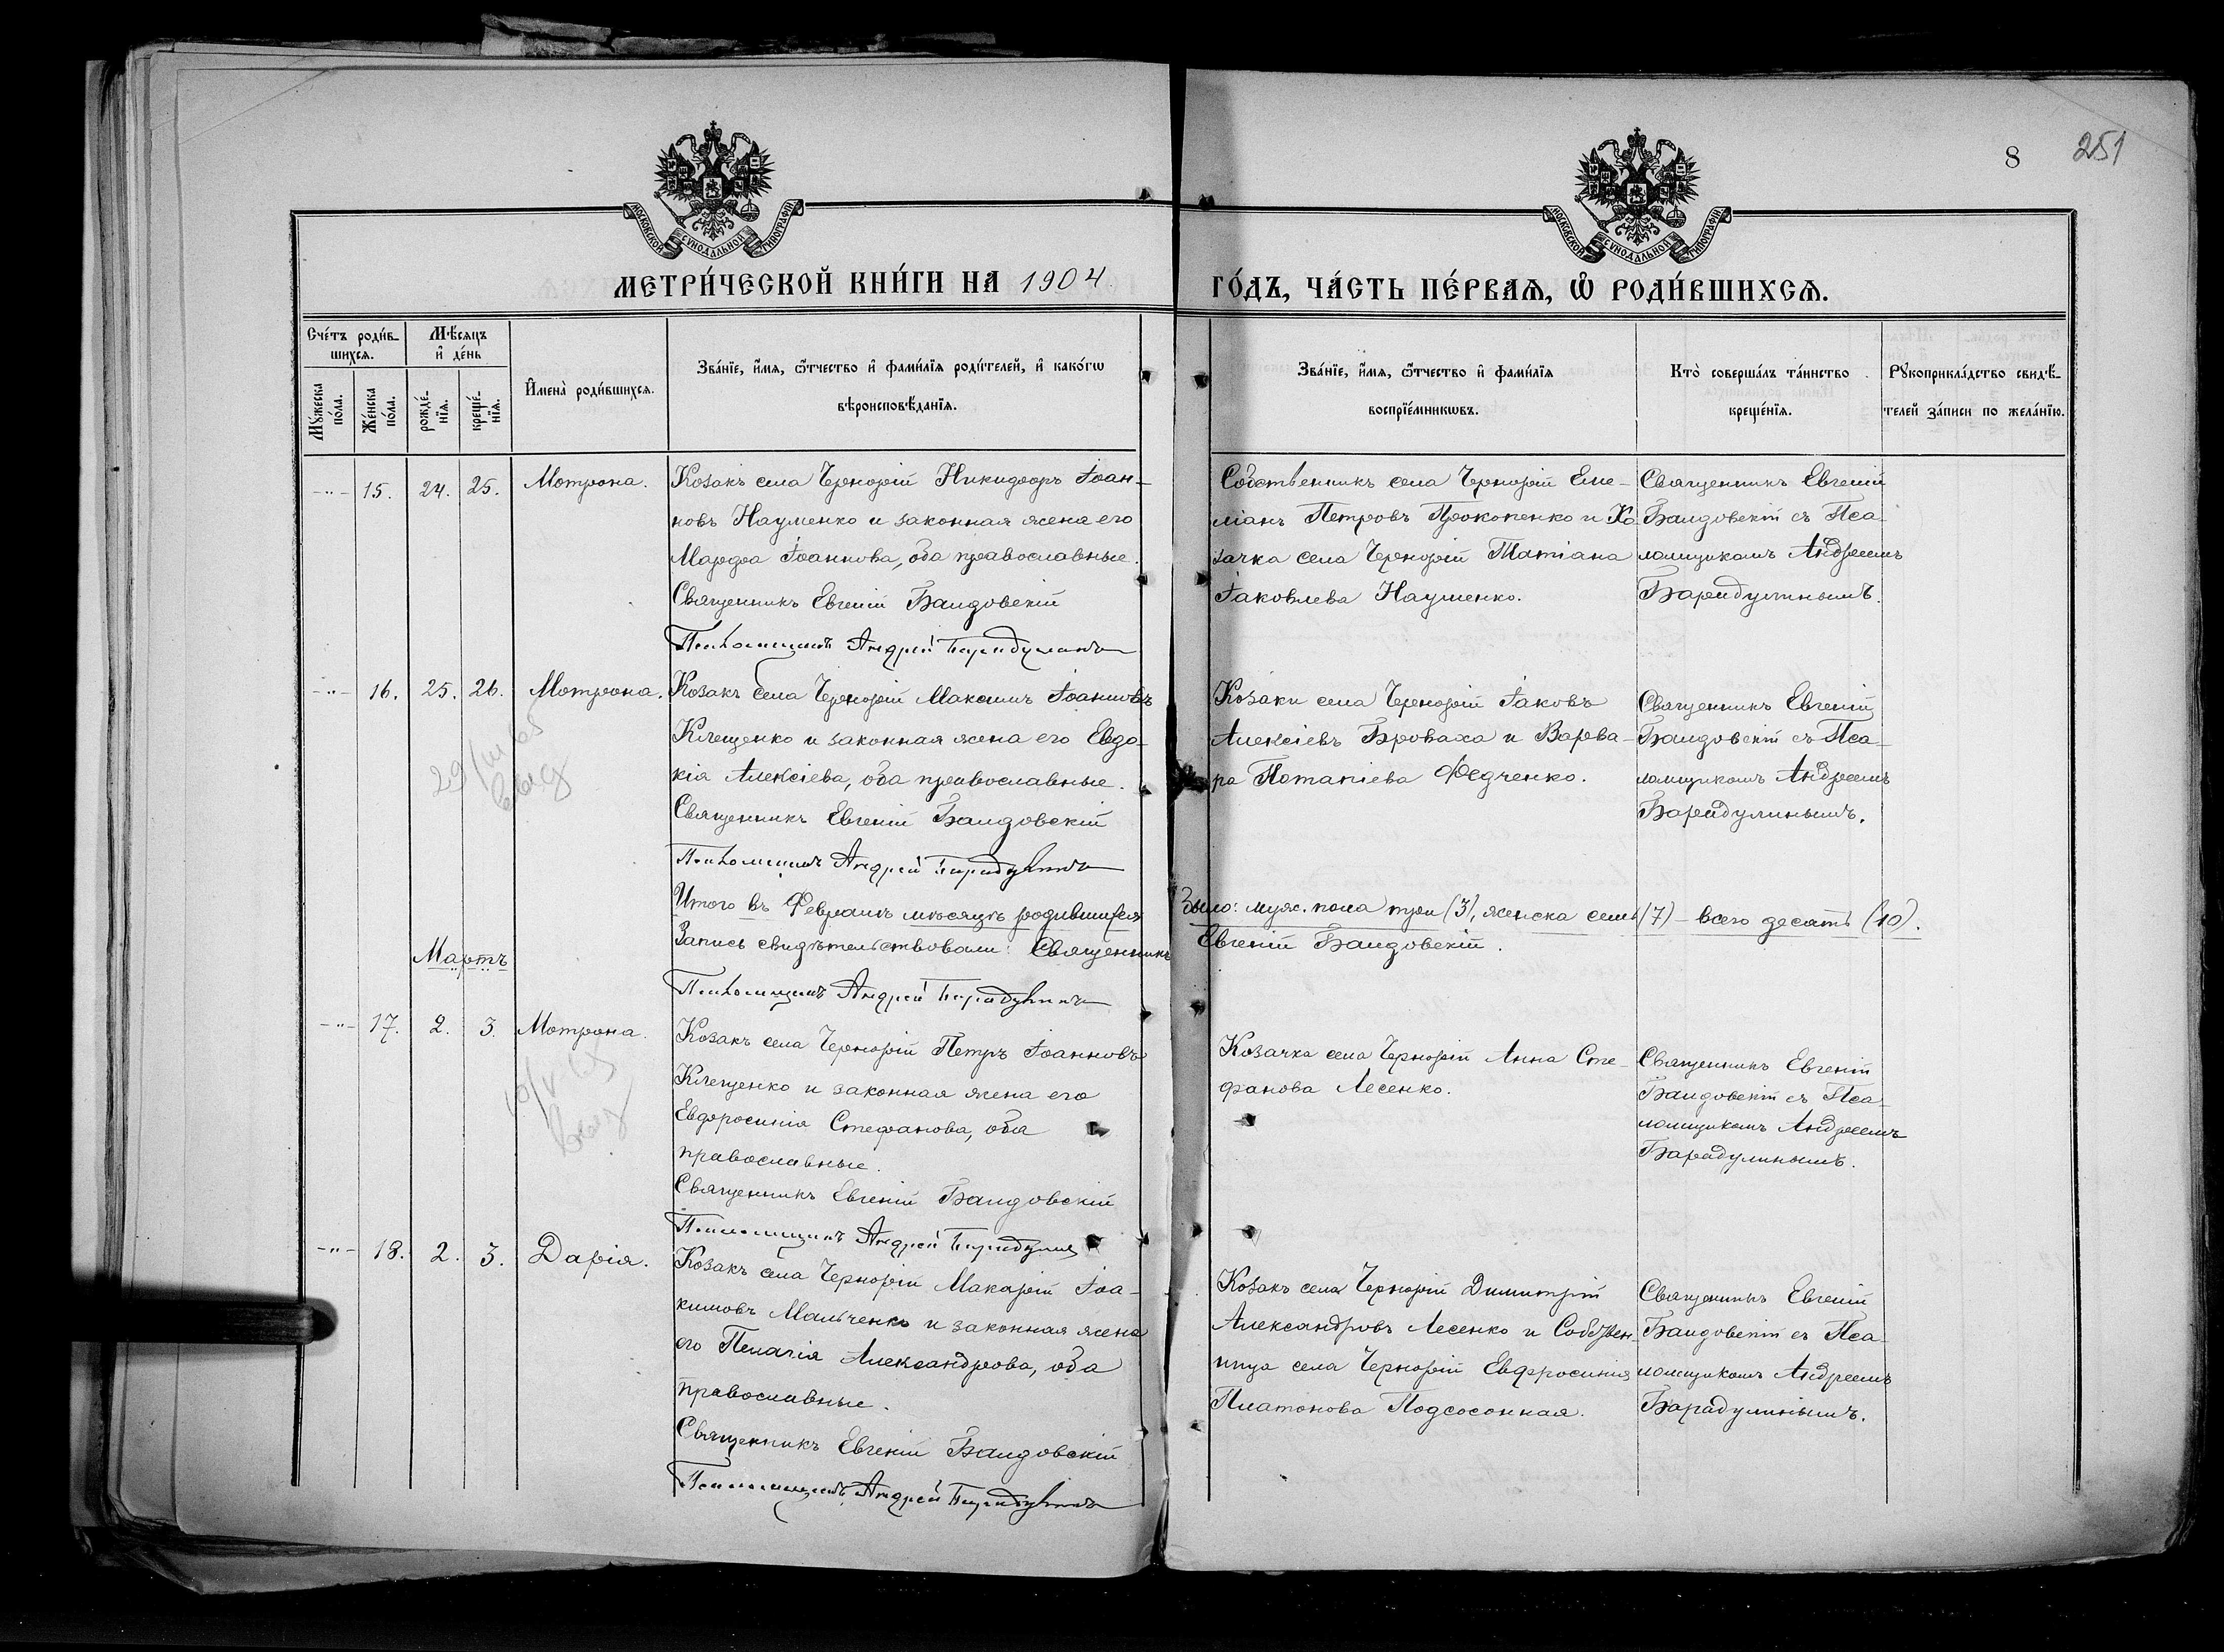 8
251
МОСКОВСКОЙ СѴНОДАЛЬНОЙ ТИПОГРАФІИ
МОСКОВСКОЙ СѴНОДАЛЬНОЙ ТИПОГРАФІИ
МЕТРИ́ЧЕСКОЙ КНИ́ГИ НА 1904.
ГО́ДЪ, ЧА́СТЬ ПЕ́РВАЯ, Ѡ РОДИ́ВШИХСЯ.
Сче́тъ роди́в-
шихся.
Мѣ́сяцъ
и҆ де́нь
Мꙋ́жеска по́ла.
Же́нска по́ла.
рожде́-
нїѧ.
креще́-
нїѧ.
И҆мена̀ роди́вшихся.
Зва́нїе, и҆́мѧ, ѻ҆́тчество и҆ фами́лїѧ роди́телей, и҆ како́гѡ
вѣроисповѣ́данїѧ.
Зва́нїе, и҆́мѧ, ѻ҆́тчество и҆ фами́лїѧ
воспрїе́мникѡвъ.
Кто̀ соверша́лъ та́инство
креще́нїѧ.
Рꙋкоприкла́дство свидѣ́-
телей за́писи по жела́нїю.
-"- 15. 24. 25. Мотрона.
Козакъ села Черногрій Никифоръ Іоан-
новъ Науменко и законная жена его
Марфа Іоаннова, оба православные.
Священникъ Евгеній Баидовскій
Псаломщикъ Андрей Барадулинъ
Собственникъ села Чернорій Еме-
ліанъ Петровъ Прокопенко и Ко-
зачка села Чернорій Татіана
Іаковлева Науменко.
Священникъ Евгеній
Баидовскій съ Пса-
ломщикомъ Андреемъ
Барадулинымъ.
-"- 16. 25. 26. Мотрона.
29/III 65
выд
Козакъ села Чернорій Максимъ Іоанновъ
Клещенко и законная жена его Евдо-
кія Алексіева, оба православные.
Священникъ Евгеній Баидовскій
Псаломщикъ Андрей Барадулинъ
Козаки села Чернорій Іаковъ
Алексіевъ Броваха и Варва-
ра Потапіева Федченко.
Священникъ Евгеній
Баидовскій съ Пса-
ломщикомъ Андреемъ
Барадулинымъ.
Итого въ Февралѣ мѣсяцѣ родившихся было: муж. пола три (3), женска семь (7) – всего десять (10).
Запись свидѣтельствовали: Священникъ Евгеній Баидовскій.
Псаломщикъ Андрей Барадулинъ
Мартъ
-"- 17. 2. 3. Мотрона.
10/V 65
выд
Козакъ села Чернорій Петръ Іоанновъ
Клещенко и законная жена его
Евфросинія Стефанова, оба
православные.
Священникъ Евгеній Баидовскій
Псаломщикъ Андрей Барадулин
Козачка села Чернорій Анна Сте-
фанова Лесенко.
Священникъ Евгеній
Баидовскій съ Пса-
ломщикомъ Андреемъ
Барадулинымъ.
-"- 18. 2. 3. Дарія.
Козакъ села Чернорій Макарій Іоа-
кимовъ Мальченко и законная жена
его Пелагія Александрова, оба
православные.
Священникъ Евгеній Баидовскій
Псаломщикъ Андрей Барадулинъ
Козакъ села Чернорій Димитрій
Александровъ Лесенко и Собствен-
ница села Чернорій Евфросинія
Платонова Подсосонная.
Священникъ Евгеній
Баидовскій съ Пса-
ломщикомъ Андреемъ
Барадулинымъ.